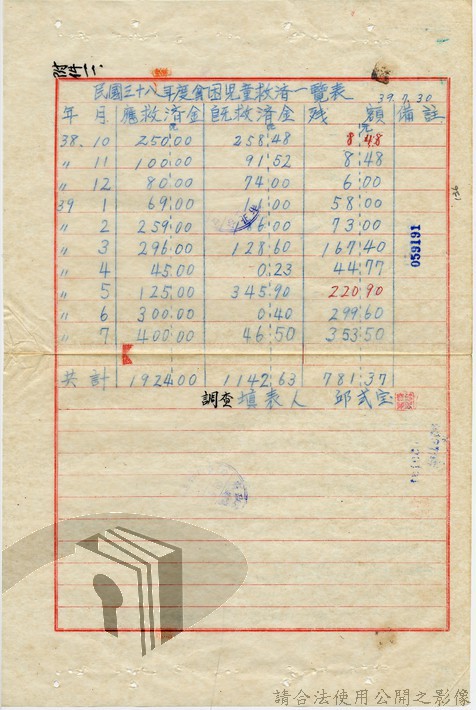 附件二.
民國三十八年度貧困児童救済一覽表 39.7.30
年 月 應救済金 既救済金 残額 備註
元 元 元
38.10 250.00 258.48 8.48
〃 11 100.00 91.52 8.48
〃 12 80.00 74.00 6.00
39 1 69.00 11.00 58.00
〃 2 259.00 6.00 73.00
〃 3 296.00 128.60 167.40
〃 4 45.00 0.23 44.77
〃 5 125.00 345.90 220.90
〃 6 300.00 0.40 299.60
〃 7 400.00 46.50 353.50
共計 1924.00 1142.63 781.37
調查填表人 邱
059191
請合法使用公開之影像